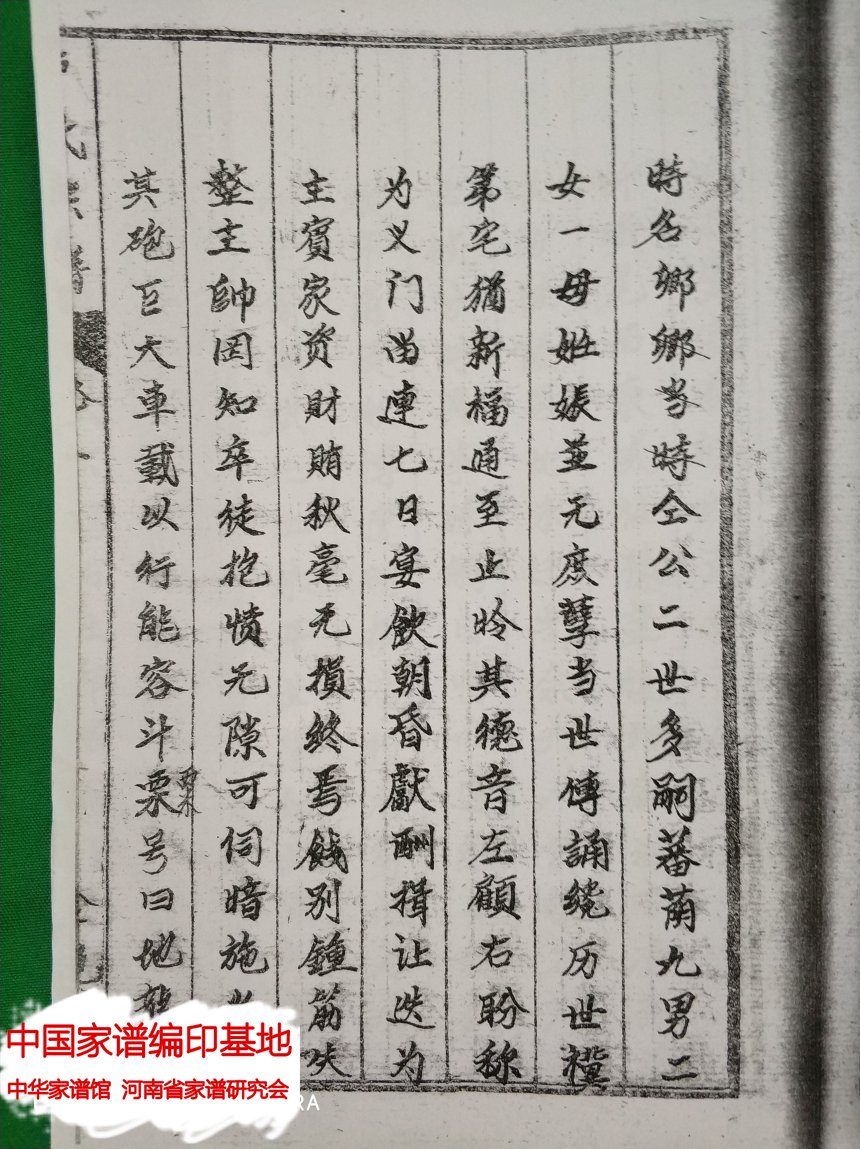 時名鄉鄉当時仝公二世多嗣蕃萠九男二
女一母姓娠並无庶孽当世傳誦纔历世
第宅猶新福通至止聆其德音左顧右盼称
为义门畄連七日宴飲朝昏獻酬揖让迭为
主賓家资財賄秋毫无損終焉餞别鐘筋
整主帥罔知卒徒抱愤无隙可伺暗施
其砲巨大車載以行能容斗栗粟号曰地
氏族譜
中国家谱编印基地
中华家谱馆 河南省家谱研究会